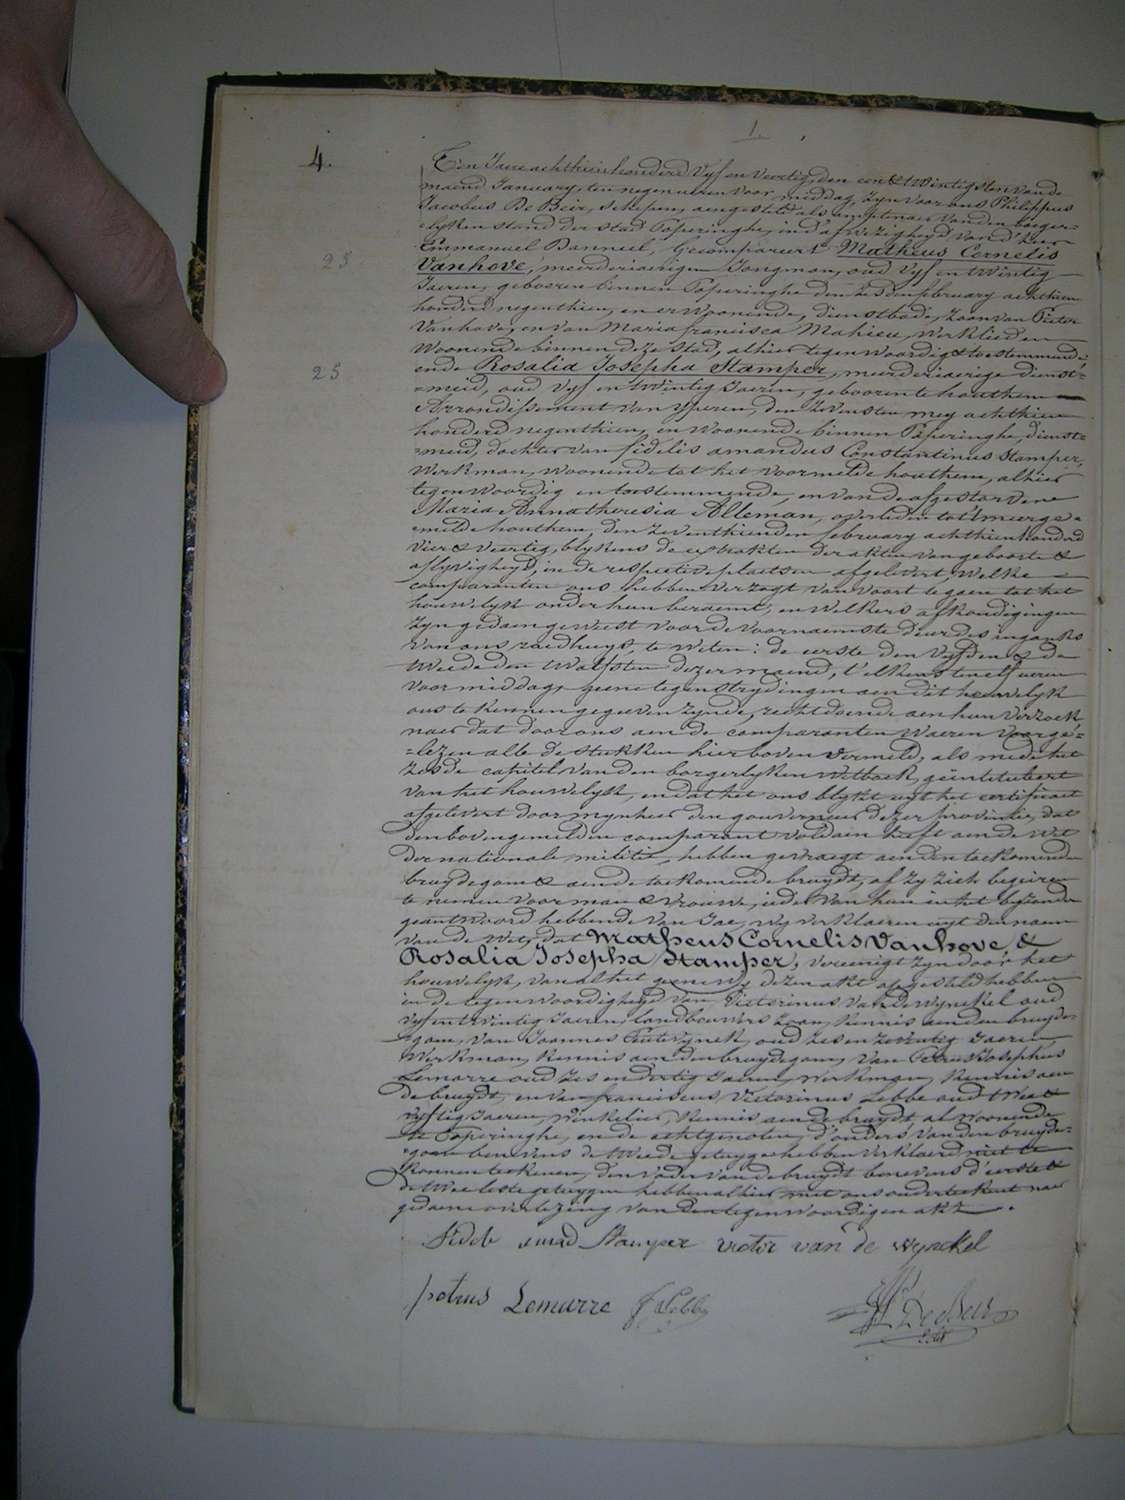 1.
4.
Ten Jaere achthien honderd Vyf en Veertig, den een & twintigsten van de
maend January, ten negen uren voor middag, zyn voor ons Philippus
Jacobus De Beir, schepen, aengesteld als amptenaer van den borger-
elyken stand der stad Poperinghe, in d'afwezigheyd van d'heer
Emmanuel Banneel, Gecompareert Matheus Cornelis
25
Vanhove, meerderjaerigen Jongman, oud Vyf en twintig
Jaeren, geboren binnen Poperinghe den february achthien
honderd negenthien, en er woonende, dienstbode, zoon van Pieter
Vanhove, en van Maria francisca Mahieu, werklieden
woonende binnen deze stad, alhier tegenwoordig & toestemmende
25
ende Rosalia Josepha Stamper, meerderjaerige dienst-
-meid, oud Vyf en twintig Jaeren, geboren te houthem
Arrondissement van Yperen, den zevensten mey achthien
honderd negenthien, en woonende binnen Poperinghe, dienst-
-meid, dochter van fidelis amandus Constantinus Stamper,
werkman, woonende tot het voormelde houthem, alhier
tegenwoordig en toestemmende, en van de afgestorvene
Maria Anna theresia Alleman, overleden tot
-melde houthem, den zeventhienden february achthien honderd
Vier & Veertig, blykens de extrakten der akten van geboorte &
aflyvigheyd, in de respective plaetsen afgelevert, Welke
comparanten ons hebben verzogt van voort te gaen tot het
houwelyk onder hun beraemt, en welkers afkondigingen
zyn gedaen geweest voor de voornaemste deur des ingangs
van ons raedhuys, te weten: de eerste den vyfden & de
tweede den twalfsten dezer maend, t'elkens ten elf uren
voor middag, geene tegenstrydingen aen dit houwelyk
ons te kennen gegeven zynde, recht doende aen hun verzoek
naer dat door ons aen de comparanten waeren voorge-
-lezen alle de stukken hier boven vermeld, als mede het
zesde capitel van den borgerlyken Wetboek, geintituleert
van het houwelyk, en dat het ons blykt uyt het certificaet
afgelevert door mynheer den gouverneur dezer provintie, dat
den bovengemelden comparant voldaen heeft aen de wet
der nationale militie, hebben gevraegt aen den toekomenden
bruydegom & aen de toekomende bruydt, of zy zich begeiren
te nemen voor man & vrouwe, ieder van hun in het byzonder
geantwoord hebbende van Jae, wy verklaeren uyt den naem
van de Wet, dat Matheus Cornelis Vanhove, &
Rosalia Josepha Stamper, vereenigt zyn door het
houwelyk, van al het gene wy dezen akt opgesteld hebben
in de tegenwoordigheyd van Victorinus Van De Wynckel oud
vyf en twintig Jaeren, landbouwers zoon, kennis aen den bruyde-
gom, van Joannes oud zes en Jaeren,
werkman, kennis aen den bruydegom, van Petrus Josephus
Lemarre oud zes en dertig Jaeren, werkman, kennis aen
de bruydt, en van franciscus Victorinus Lebbe oud twee &
vyftig Jaeren, winkelier, kennis aen de bruydt, al woonende
te Poperinghe, en de echtgenoten, d'ouders van den bruyde-
-gom benevens de tweede getuyge hebben verklaerd niet te
konnen teekenen, den vader van de bruydt benevens d'eerste &
de twee leste getuygen hebben alhier met ons onderteekent naer
gedaene overlezing van den tegenwoordigen akt.
Stamper victor van de wynckel
petrus Lemarre F Lebbe
De Beir